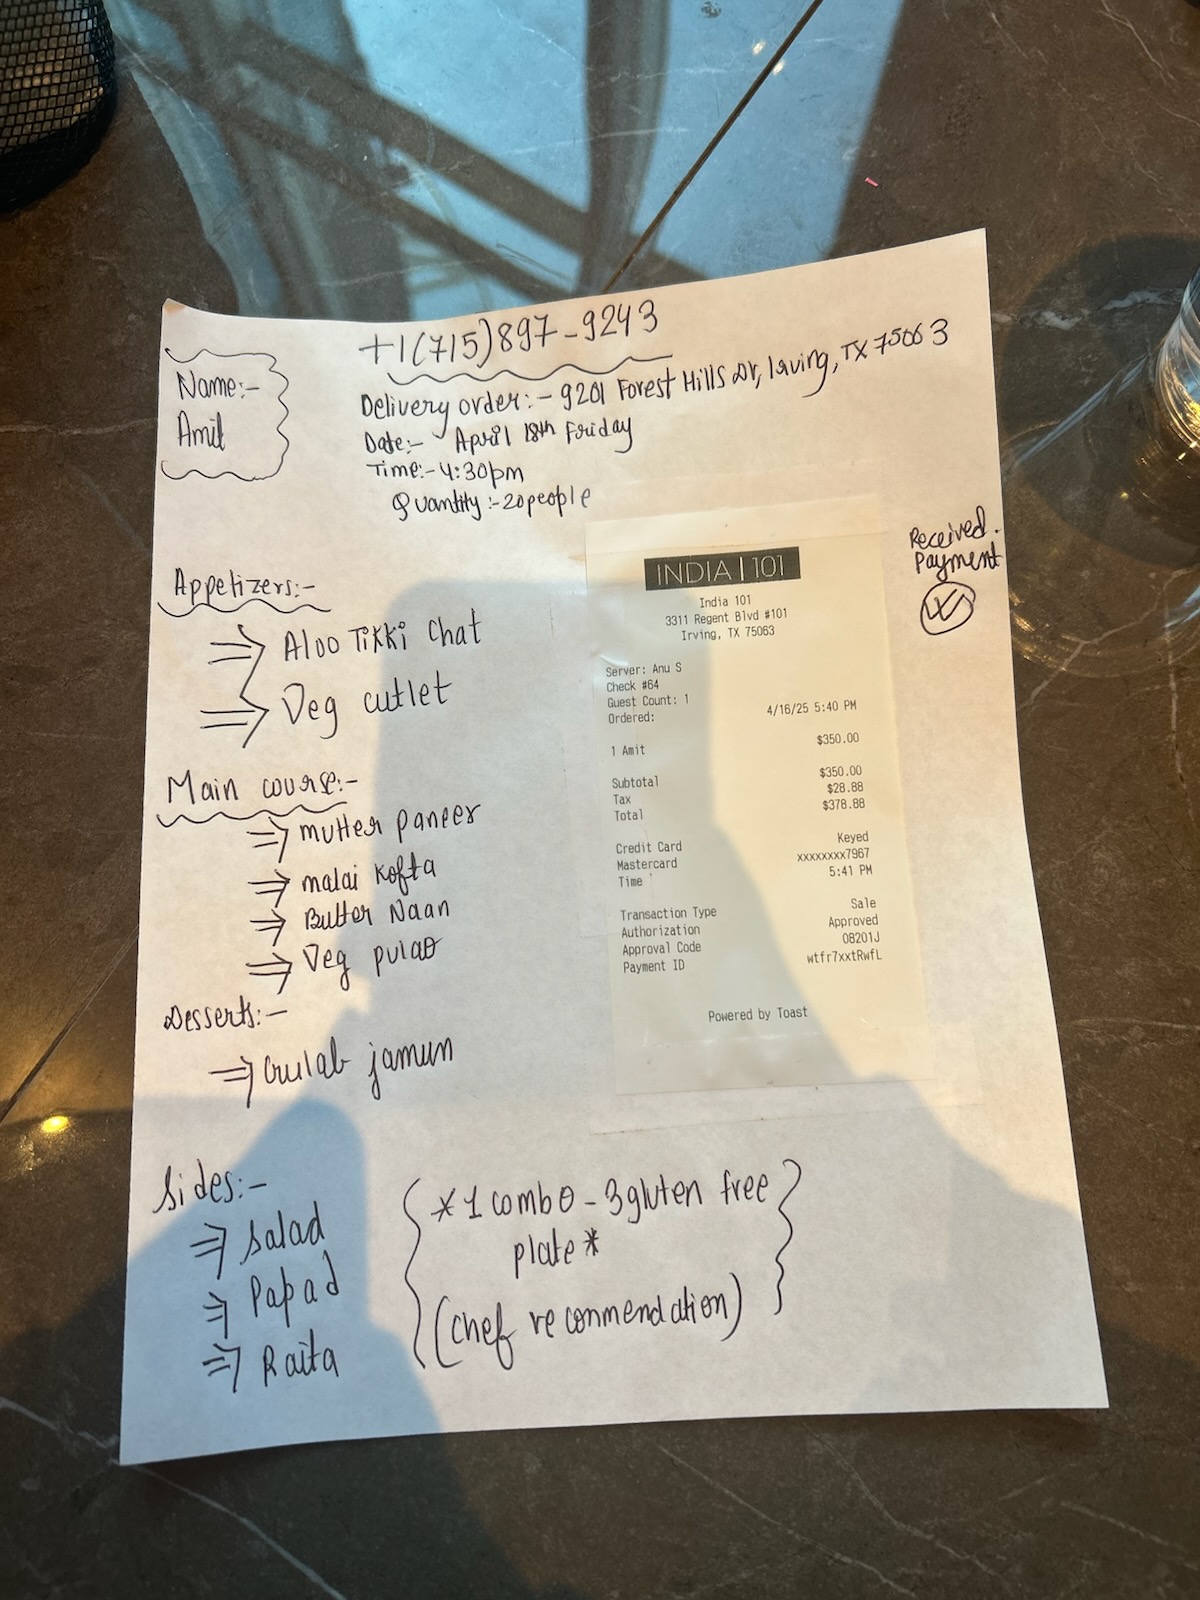 +1(715)897-9243
Name:-
Amit
Delivery order:- 9201 Forest Hills Dr, Irving, TX 75063
Date:- April 18th Friday
Time:- 4:30pm
Quantity:- 20 people
Received.
Payment
Appetizers:-
⇒ Aloo Tikki Chat
⇒ Veg cutlet
Main course:-
⇒ mutter paneer
⇒ malai Kofta
⇒ Butter Naan
⇒ Veg pulao
Desserts:-
⇒ Gulab jamun
Sides:-
⇒ Salad
⇒ Papad
⇒ Raita
*1 combo - 3 gluten free
plate*
(chef recommendation)
INDIA | 101
India 101
3311 Regent Blvd #101
Irving, TX 75063
Server: Anu S
Check #64
Guest Count: 1
Ordered: 4/16/25 5:40 PM
1 Amit $350.00
Subtotal $350.00
Tax $28.88
Total $378.88
Credit Card Keyed
Mastercard xxxxxxxx7967
Time 5:41 PM
Transaction Type Sale
Authorization Approved
Approval Code 08201J
Payment ID wtfr7xxtRwfL
Powered by Toast